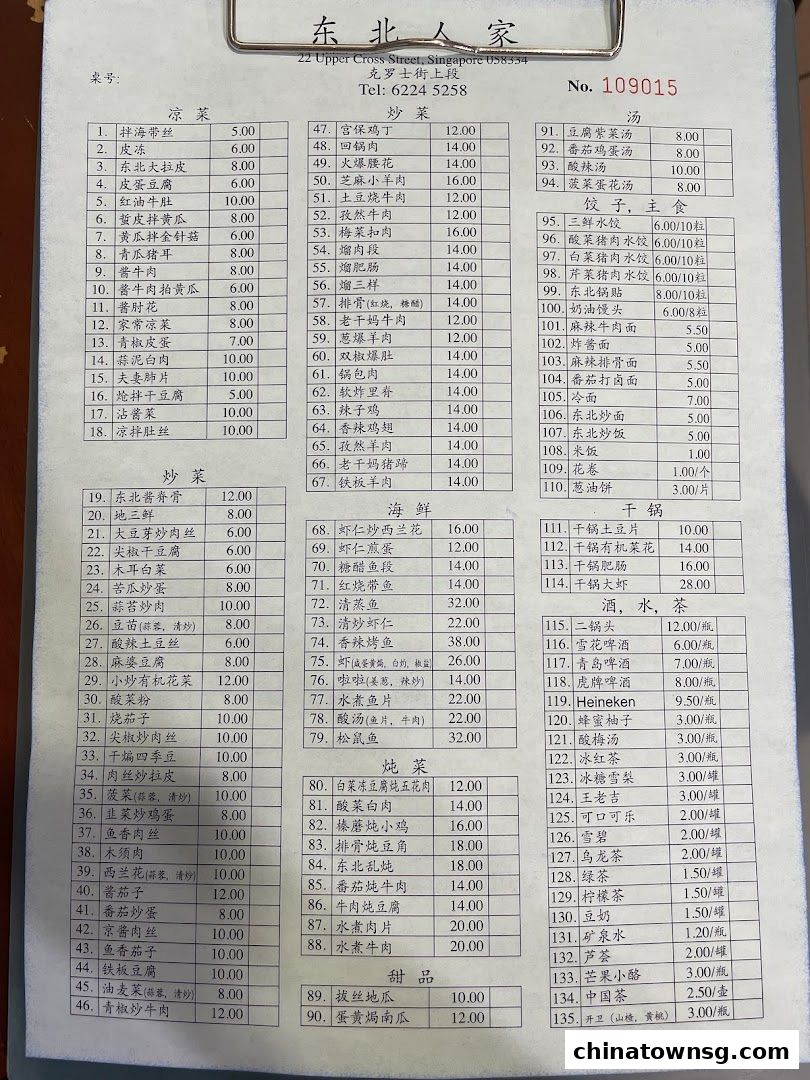 东北人家
22 Upper Cross Street, Singapore 058334
克罗士街上段
桌号:
Tel: 6224 5258
No. 109015
凉菜
1. 拌海带丝 5.00
2. 皮冻 6.00
3. 东北大拉皮 8.00
4. 皮蛋豆腐 6.00
5. 红油牛肚 10.00
6. 蜇皮拌黄瓜 8.00
7. 黄瓜拌金针菇 6.00
8. 青瓜猪耳 8.00
9. 酱牛肉 8.00
10. 酱牛肉拍黄瓜 6.00
11. 酱肘花 8.00
12. 家常凉菜 8.00
13. 青椒皮蛋 7.00
14. 蒜泥白肉 10.00
15. 夫妻肺片 10.00
16. 炝拌干豆腐 5.00
17. 沾酱菜 10.00
18. 凉拌肚丝 10.00
炒菜
19. 东北酱脊骨 12.00
20. 地三鲜 8.00
21. 大豆芽炒肉丝 6.00
22. 尖椒干豆腐 6.00
23. 木耳白菜 6.00
24. 苦瓜炒蛋 8.00
25. 蒜苔炒肉 10.00
26. 豆苗(蒜蓉, 清炒) 8.00
27. 酸辣土豆丝 6.00
28. 麻婆豆腐 8.00
29. 小炒有机菜花 12.00
30. 酸菜粉 8.00
31. 烧茄子 10.00
32. 尖椒炒肉丝 10.00
33. 干煸四季豆 10.00
34. 肉丝炒拉皮 8.00
35. 菠菜(蒜蓉, 清炒) 10.00
36. 韭菜炒鸡蛋 8.00
37. 鱼香肉丝 10.00
38. 木须肉 10.00
39. 西兰花(蒜蓉, 清炒) 10.00
40. 酱茄子 12.00
41. 番茄炒蛋 8.00
42. 京酱肉丝 10.00
43. 鱼香茄子 10.00
44. 铁板豆腐 10.00
45. 油麦菜(蒜蓉, 清炒) 8.00
46. 青椒炒牛肉 12.00
炒菜
47. 宫保鸡丁 12.00
48. 回锅肉 14.00
49. 火爆腰花 14.00
50. 芝麻小羊肉 16.00
51. 土豆烧牛肉 12.00
52. 孜然牛肉 12.00
53. 梅菜扣肉 16.00
54. 熘肉段 14.00
55. 熘肥肠 14.00
56. 熘三样 14.00
57. 排骨(红烧, 糖醋) 14.00
58. 老干妈牛肉 12.00
59. 葱爆羊肉 12.00
60. 双椒爆肚 14.00
61. 锅包肉 14.00
62. 软炸里脊 14.00
63. 辣子鸡 14.00
64. 香辣鸡翅 14.00
65. 孜然羊肉 14.00
66. 老干妈猪蹄 14.00
67. 铁板羊肉 14.00
海鲜
68. 虾仁炒西兰花 16.00
69. 虾仁煎蛋 12.00
70. 糖醋鱼段 14.00
71. 红烧带鱼 14.00
72. 清蒸鱼 32.00
73. 清炒虾仁 22.00
74. 香辣烤鱼 38.00
75. 虾(咸蛋黄焗, 白灼, 椒盐) 26.00
76. 啦啦(姜葱, 辣炒) 14.00
77. 水煮鱼片 22.00
78. 酸汤(鱼片, 牛肉) 22.00
79. 松鼠鱼 32.00
炖菜
80. 白菜冻豆腐炖五花肉 12.00
81. 酸菜白肉 14.00
82. 榛磨炖小鸡 16.00
83. 排骨炖豆角 18.00
84. 东北乱炖 18.00
85. 番茄炖牛肉 14.00
86. 牛肉炖豆腐 14.00
87. 水煮肉片 20.00
88. 水煮牛肉 20.00
甜品
89. 拔丝地瓜 10.00
90. 蛋黄焗南瓜 12.00
汤
91. 豆腐紫菜汤 8.00
92. 番茄鸡蛋汤 8.00
93. 酸辣汤 10.00
94. 菠菜蛋花汤 8.00
饺子, 主食
95. 三鲜水饺 6.00/10粒
96. 酸菜猪肉水饺 6.00/10粒
97. 白菜猪肉水饺 6.00/10粒
98. 芹菜猪肉水饺 6.00/10粒
99. 东北锅贴 8.00/10粒
100. 奶油馒头 6.00/8粒
101. 麻辣牛肉面 5.50
102. 炸酱面 5.00
103. 麻辣排骨面 5.50
104. 番茄打卤面 5.00
105. 冷面 7.00
106. 东北炒面 5.00
107. 东北炒饭 5.00
108. 米饭 1.00
109. 花卷 1.00/个
110. 葱油饼 3.00/片
干锅
111. 干锅土豆片 10.00
112. 干锅有机菜花 14.00
113. 干锅肥肠 16.00
114. 干锅大虾 28.00
酒, 水, 茶
115. 二锅头 12.00/瓶
116. 雪花啤酒 6.00/瓶
117. 青岛啤酒 7.00/瓶
118. 虎牌啤酒 8.00/瓶
119. Heineken 9.50/瓶
120. 蜂蜜柚子 3.00/瓶
121. 酸梅汤 3.00/瓶
122. 冰红茶 3.00/瓶
123. 冰糖雪梨 3.00/罐
124. 王老吉 3.00/罐
125. 可口可乐 2.00/罐
126. 雪碧 2.00/罐
127. 乌龙茶 2.00/罐
128. 绿茶 1.50/罐
129. 柠檬茶 1.50/罐
130. 豆奶 1.50/罐
131. 矿泉水 1.20/瓶
132. 芦荟 2.00/罐
133. 芒果小酪 3.00/瓶
134. 中国茶 2.50/壶
135. 开卫 (山楂, 黄桃) 3.00/瓶
chinatownsg.com